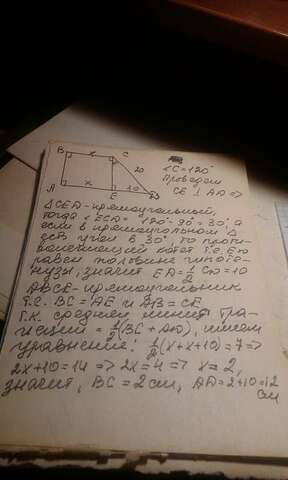 B x C
∠C=120°
20
Проведем
CE ⊥ AD =>
A x E 10 D
ΔCED - прямоугольный,
тогда ∠ECD = 120°-90°=30°, а
если в прямоугольном Δ
угол в 30°, то проти-
волежащий катет т.е. ED
равен половине гипоте-
нузы, значит ED=1/2 CD=10
ABCE-прямоугольник
т.е. BC=AE и AB=CE.
Т.к. средняя линия тра-
пеции = 1/2(BC+AD), имеем
уравнение: 1/2(x+x+10)=7=>
2x+10=14=>2x=4=>x=2,
значит, BC=2см, AD=2+10=12
см